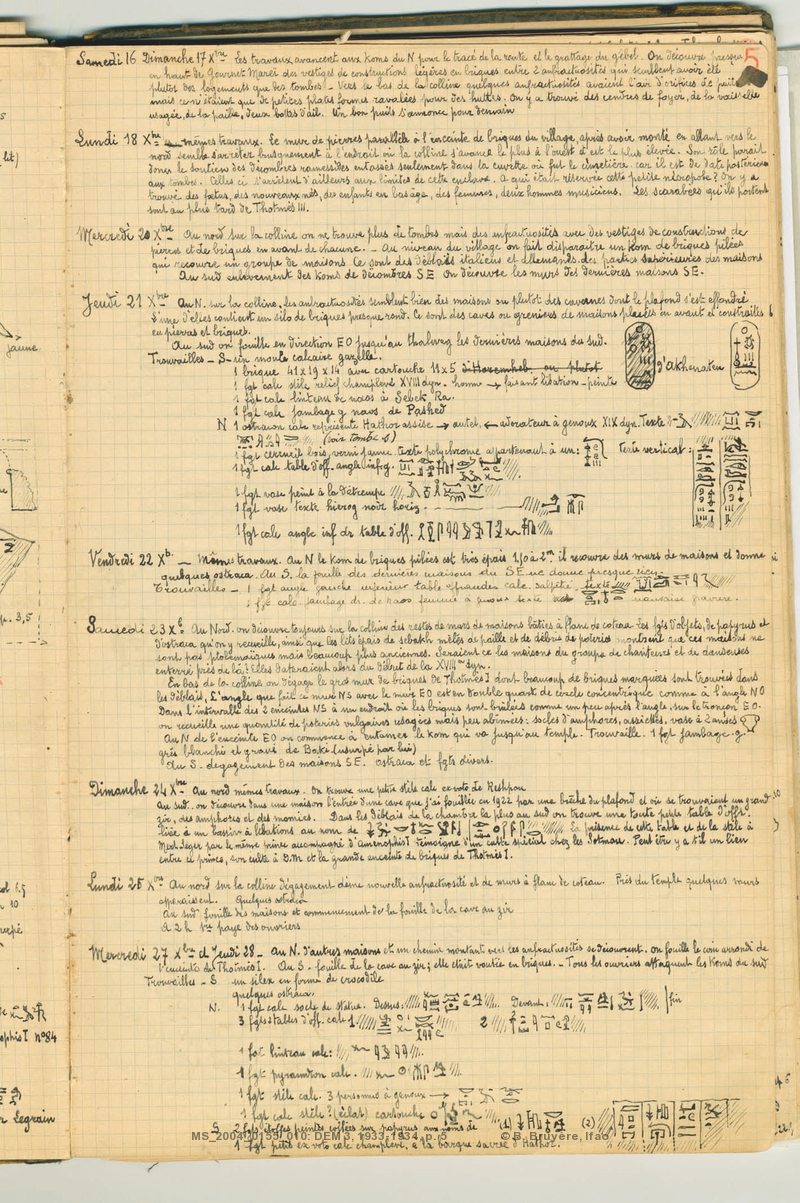 5
Samedi 16 Dimanche 17 Xbre Les travaux avancent aux Koms du N pour le tracé de la route et le grattage du gébel. On découvre presqu
en haut de Gournet Mareï des vestiges de constructions légères en briques entre 2 anfractuosités qui semblent avoir été
plutôt des logements que des tombes. Vers le bas de la colline quelques anfractuosités avaient l'air d'orifices de puits
mais ce n'étaient que de petites plates formes ravalées pour des huttes. On y a trouvé des cendres de foyer, de la vaisselle
usagée, de la paille, deux bottes d'ail. Un bon puits s'annonce pour demain
Lundi 18 Xbre mêmes travaux. Le mur de pierres parallèle à l'enceinte de briques du village, après avoir monté en allant vers le
nord semble s'arrêter brusquement à l'endroit où la colline s'avance le plus à l'ouest et est le plus élevée. Son rôle paraît
donc le soutien des décombres ramessides entassés seulement dans la cuvette où fut le cimetière car il est de date postérieure
aux tombes. Celles ci s'arrêtent d'ailleurs aux limites de cette enclave. A qui était réservée cette petite nécropole? On y a
trouvé des fœtus, des nouveaux nés, des enfants en bas âge, des femmes, deux hommes musiciens. Les scarabées qu'ils portent
sont au plus tard de Thotmès III.
Mercredi 20 Xbre Au nord sur la colline on ne trouve plus de tombes mais des anfractuosités avec des vestiges de constructions de
pierres et de briques en avant de chacune. - Au niveau du village on fait disparaître un kom de briques pilées
qui recouvre un groupe de maisons. Ce sont des déblais italiens et allemands des parties supérieures des maisons
Au sud enlèvement des Koms de décombres SE On découvre les murs des dernières maisons SE.
Jeudi 21 Xbre Au N. sur la colline, les anfractuosités semblent bien des maisons ou plutôt des cavernes dont le plafond s'est effondré
L'une d'elles contient un silo de briques presque rond. Ce sont des caves ou greniers de maisons placées en avant et construites
en pierres et briques.
Au sud on fouille en direction EO jusqu'au thalweg les dernières maisons du sud.
Trouvailles - S - un moule calcaire gazelle.
1 brique 41 x 19 x 14 avec cartouche 11 x 5 d'Horemheb ou plutôt d'Akhenaten
1 fgt calc stèle relief champlevé XVIII dyn. homme → faisant libation - peinte
1 fgt calc linteau de naos à Sebek Ra.
1 fgt calc jambage g naos de Pashed
N 1 ostracon calc représente Hathor assise → autel, ← adorateur à genoux XIX dyn. Texte
(voir tombe 6)
1 fgt cercueil bois, verni jaune, texte polychrome appartenant à un: Texte vertical:
1 fgt calc table d'off. angle inf. g.
1 fgt vase peint à la détrempe
1 fgt vase texte hierog noir horiz.
1 fgt calc angle inf dr table d'off.
Vendredi 22 Xb. - Mêmes travaux. Au N le Kom de briques pilées est très épais 1,50 à 2m il recouvre des murs de maisons et donne
quelques ostraca. Au S. la fouille des dernières maisons du SE ne donne presque rien.
Trouvailles - 1 fgt angle gauche inférieur table offrandes calc. salpêtré texte
1 fgt calc jambage dr. de naos femme à genoux texte mauvaise gravure.
Samedi 23 Xb Au Nord. on découvre toujours sur la colline des restes de murs de maisons bâties à flanc de coteau. Les fgts d'objets, de papyrus et
d'ostraca qu'on y recueille, ainsi que les lits épais de sebakh mêlés de paille et de débris de poteries montrent que ces maisons ne
sont pas ptolémaïques mais beaucoup plus anciennes. Seraient ce les maisons du groupe de chanteurs et de danseuses
enterré près de là? Elles dateraient alors du début de la XVIIIme dyn.
En bas de la colline on dégage le gros mur de briques de Thotmès I dont beaucoup de briques marquées sont trouvées dans
les déblais. L'angle que fait ce mur NS avec le mur EO est en double quart de cercle concentrique comme à l'angle NO
Dans l'intervalle des 2 enceintes NS à un endroit où les briques sont brûlées comme un peu après l'angle sur le tronçon EO.
on recueille une quantité de poteries vulgaires usagées mais peu abîmées: socles d'amphores, assiettes, vase à 2 anses
Au N de l'enceinte EO on commence à entamer le kom qui va jusqu'au temple. Trouvaille. 1 fgt jambage g
grès blanchi et gravé de Baki (usurpé par lui)
Au S. dégagement des maisons SE. ostraca et fgts divers.
Dimanche 24 Xbre Au nord mêmes travaux. On trouve une petite stèle calc ex voto de Reshpou
Au sud. on découvre dans une maison l'entrée d'une cave que j'ai fouillée en 1922 par une brèche du plafond et où se trouvaient un grand
zir, des amphores et des momies. Dans les déblais de la chambre la plus au sud on trouve une toute petite table d'offr.
liée à un bassin à libations au nom de La présence de cette table et de la stèle à
Med. Leger par le même prince accompagné d'Amenophis I témoigne d'un culte spécial chez les Sotmou. Peut être y a t'il un lien
entre ce prince, son culte à D.M et la grande enceinte de briques de Thotmès I.
Lundi 25 Xbre Au nord sur la colline dégagement d'une nouvelle anfractuosité et de murs à flanc de coteau. Près du temple quelques murs
apparaissent. Quelques ostraca
Au sud fouille des maisons et commencement de la fouille de la cave au zir
à 2 h paye des ouvriers
Mercredi 27 Xbre et Jeudi 28 - Au N. d'autres maisons et un chemin montant vers les anfractuosités se découvrent. On fouille le coin arrondi de
l'enceinte de Thotmès I. Au S. fouille de la cave au zir; elle était voûtée en briques. - Tous les ouvriers attaquent les Koms du sud
Trouvailles - S un silex en forme de crocodile
quelques ostraca.
N. 1 fgt calc socle de statue. Dessus: Devant: fin
3 fgts tables d'off. calc 1. 2
1 fgt linteau calc:
1 fgt pyramidion calc.
1 fgt stèle calc. 3 personnes à genoux →
1 fgt calc stèle? (éclat) cartouche
S 2 fgts étoffes peintes collées sur papyrus aux noms de (1) (2)
1 fgt petit ex voto calc champlevé, à la barque sacrée d'Hathor.
MS_2004_0155_010: DEM 3, 1933-1934, p. 5 © B. Bruyère, Ifao
jaune
n° 84
r Legrain